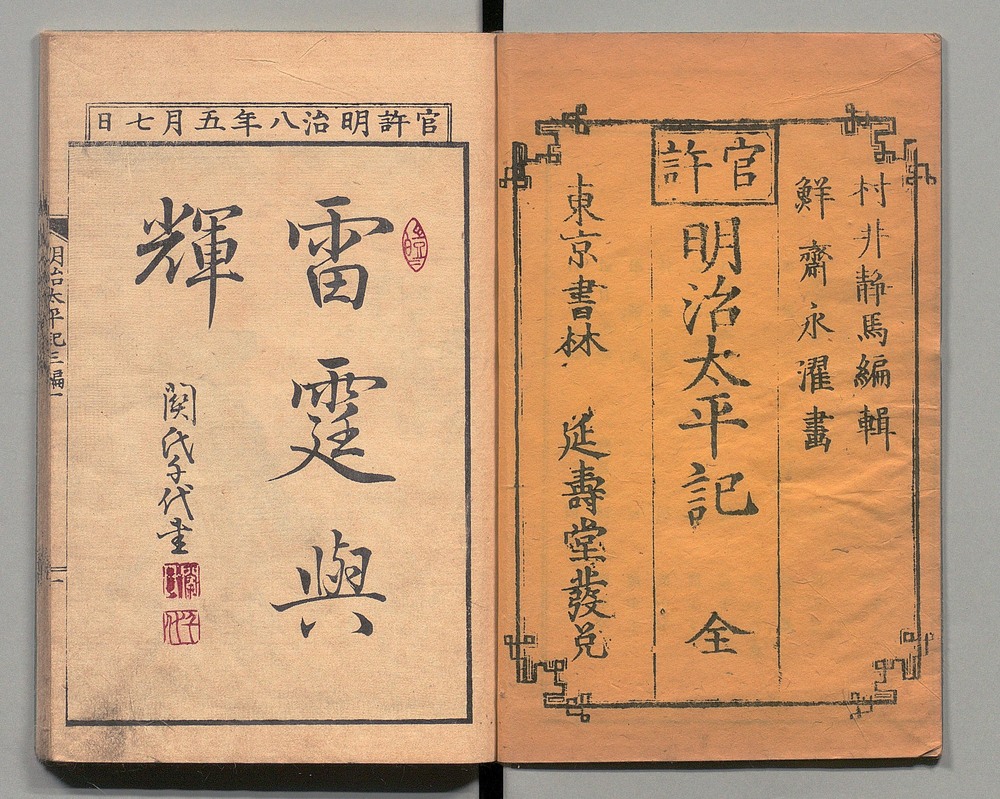 官許
村井静馬編輯
鮮齋永濯畫
明治太平記 全
東京書林 延壽堂發兌
官許明治八年五月七日
雷霆與
輝
関氏千代書
明治太平記三編一
一